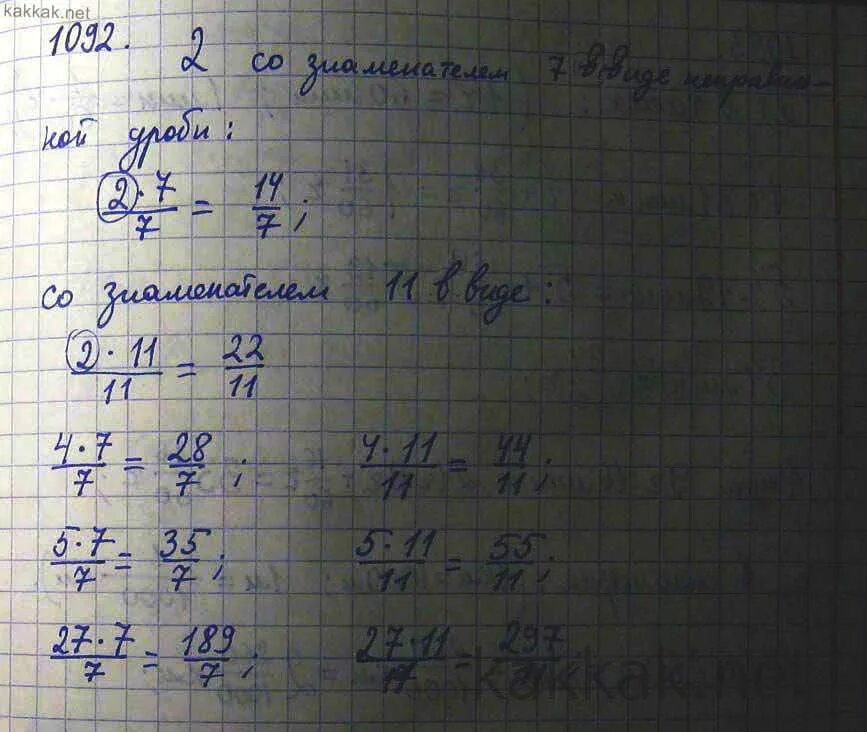 kakkak.net
1092. 2 со знаменателем 7 в виде неправиль-
ной дроби:
2·7/7 = 14/7;
со знаменателем 11 в виде:
2·11/11 = 22/11
4·7/7 = 28/7; 4·11/11 = 44/11;
5·7/7 = 35/7; 5·11/11 = 55/11;
27·7/7 = 189/7; 27·11/11 = 297/11
kakkak.ne